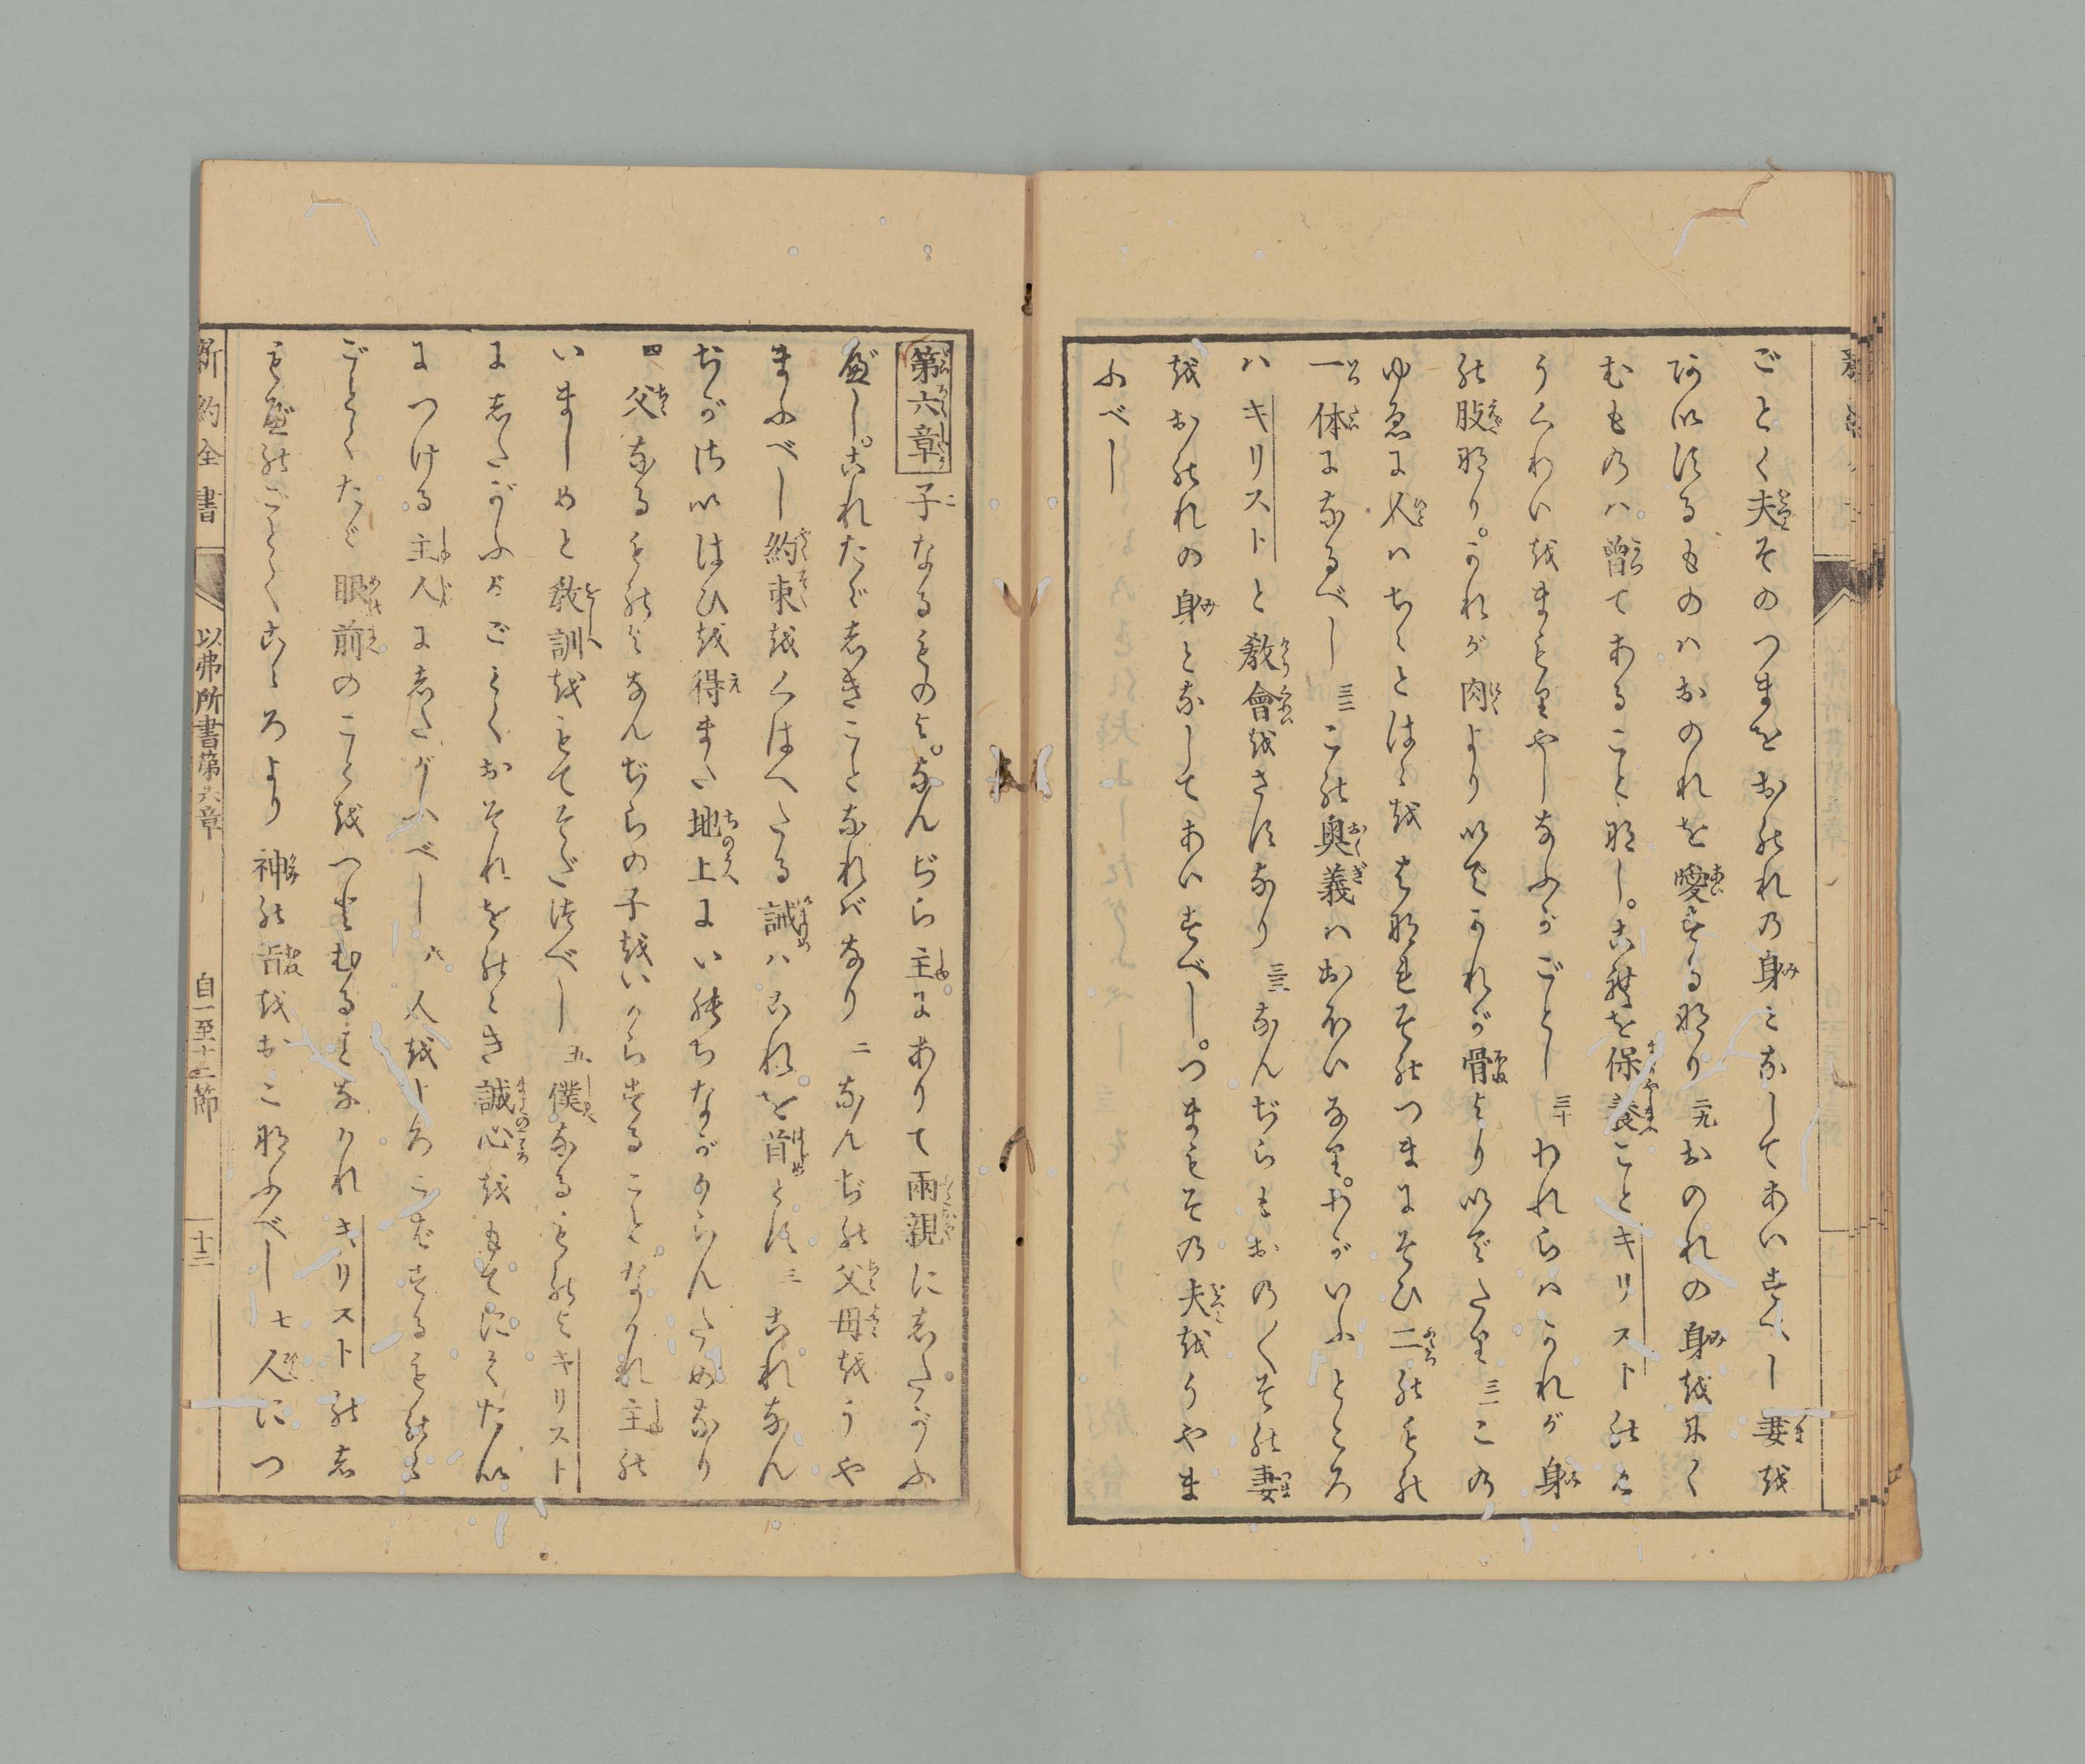 ごとく夫そのつまをおのれの身となしてあいすべし妻を
あいするものハおのれを愛するなり二九おのれの身をにく
むものハ曽てあることなし。これを保養ことキリストのと
うくわいをまもりやしなふがごとし三十われらハこれが身
の肢なり。これが肉より以でこれが骨より以でたり三一この
ゆゑに人ハちゝとはゝをはなれそのつまにそひ二のもの
一体になるべし三二この奥義ハおほいなり。わがいふところ
ハキリストと教會をさすなり三三なんぢらもおの〱その妻
をおのれの身となしてあいすべし。つまもその夫をうやま
ふべし
第六章子なるものよ。なんぢら主にありて兩親にしたがふ
べし。これたゞしきことなれバなり二なんぢの父母をうや
まふべし約束をくはへたる誡ハこれを首とす三これなん
ぢがさいはひを得また地上にいのちながからんためなり
四父なるものよなんぢらの子をいからすることなかれ主の
いましめと教訓をもてそだつべし五僕なるものよキリスト
にしたがふがごとくおそれをのゝき誠心をもてにくたい
につける主人にしたがふべし六人をよろこばするものゝ
ごとくたゞ眼前のことをつとむることなかれキリストのし
もべのごとくこゝろより神の旨をおこなふべし七人につ
新約全書
以弗所書第六章
自一至十二節
十二